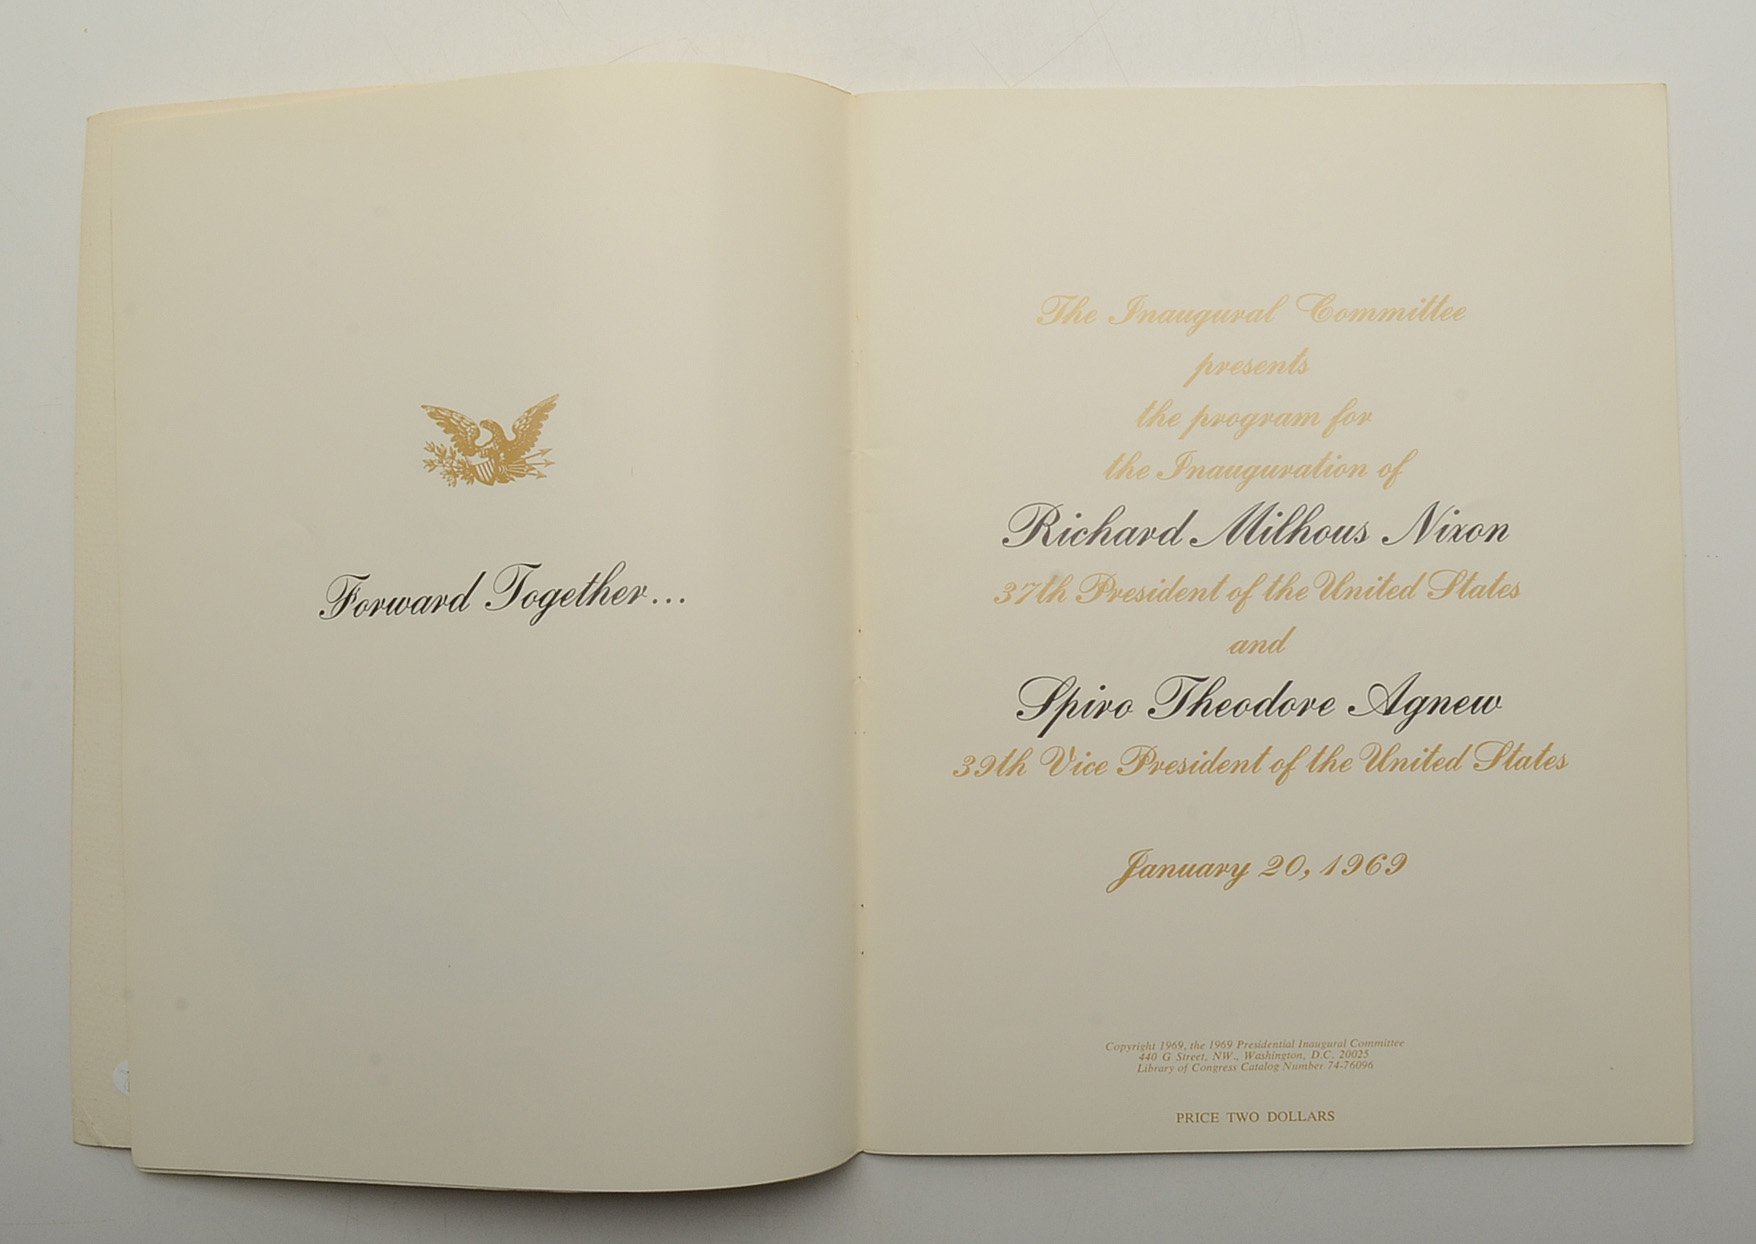 Forward Together...
The Inaugural Committee
presents
the program for
the Inauguration of
Richard Milhous Nixon
37th President of the United States
and
Spiro Theodore Agnew
39th Vice President of the United States
January 20, 1969
Copyright 1969, the 1969 Presidential Inaugural Committee
440 G Street, NW., Washington, D.C. 20025
Library of Congress Catalog Number 74-76096
PRICE TWO DOLLARS